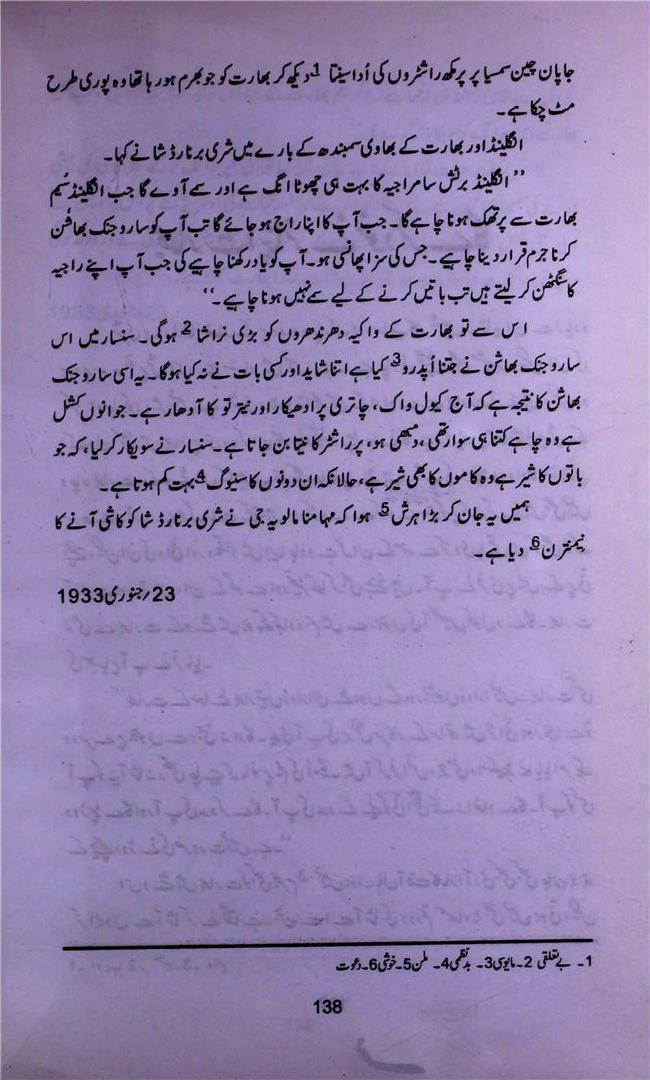 جاپان چین سمسیا پر پرمکھ راشٹروں کی اُداسینتا 1 دیکھ کر بھارت کو جو بھرم ہو رہا تھا وہ پوری طرح
مٹ چکا ہے۔
انگلینڈ اور بھارت کے بھاوی سمبندھ کے بارے میں شری برنارڈ شا نے کہا۔
’’انگلینڈ برٹش سامراجیہ کا بہت ہی چھوٹا انگ ہے اور سمے آوے گا جب انگلینڈ سُیم
بھارت سے پرتھک ہونا چاہے گا۔ جب آپ کا اپنا راج ہو جائے گا تب آپ کو ساروجنک بھاشن
کرنا جرم قرار دینا چاہیے۔ جس کی سزا پھانسی ہو۔ آپ کو یاد رکھنا چاہیے کی جب آپ اپنے راجیہ
کا سنگٹھن کر لیتے ہیں تب باتیں کرنے کے لیے سمے نہیں ہونا چاہیے۔‘‘
اس سے تو بھارت کے واکیہ دھرندھروں کو بڑی نراشا 2 ہوگی۔ سنسار میں اس
ساروجنک بھاشن نے جتنا اُپدرو 3 کیا ہے اتنا شاید اور کسی بات نے نہ کیا ہوگا۔ یہ اسی ساروجنک
بھاشن کا نتیجہ ہے کہ آج کیول واک، چاتری پر ادھیکار اور نیترتو کا آدھار ہے۔ جو انوں کشل
ہے وہ چاہے کتنا ہی سوارتھی، دمبھی ہو، پر راشٹر کا نیتا بن جاتا ہے۔ سنسار نے سویکار کر لیا، کہ جو
باتوں کا شیر ہے وہ کاموں کا بھی شیر ہے، حالانکہ ان دونوں کا سنیوگ 4 بہت کم ہوتا ہے۔
ہمیں یہ جان کر بڑا ہرش 5 ہوا کہ مہامنا مالویہ جی نے شری برنارڈ شا کو کاشی آنے کا
نیمنترن 6 دیا ہے۔
23؍جنوری 1933
1۔ بے تعلقی 2۔ مایوسی 3۔ بدنظمی 4۔ ملن 5۔ خوشی 6۔ دعوت
138